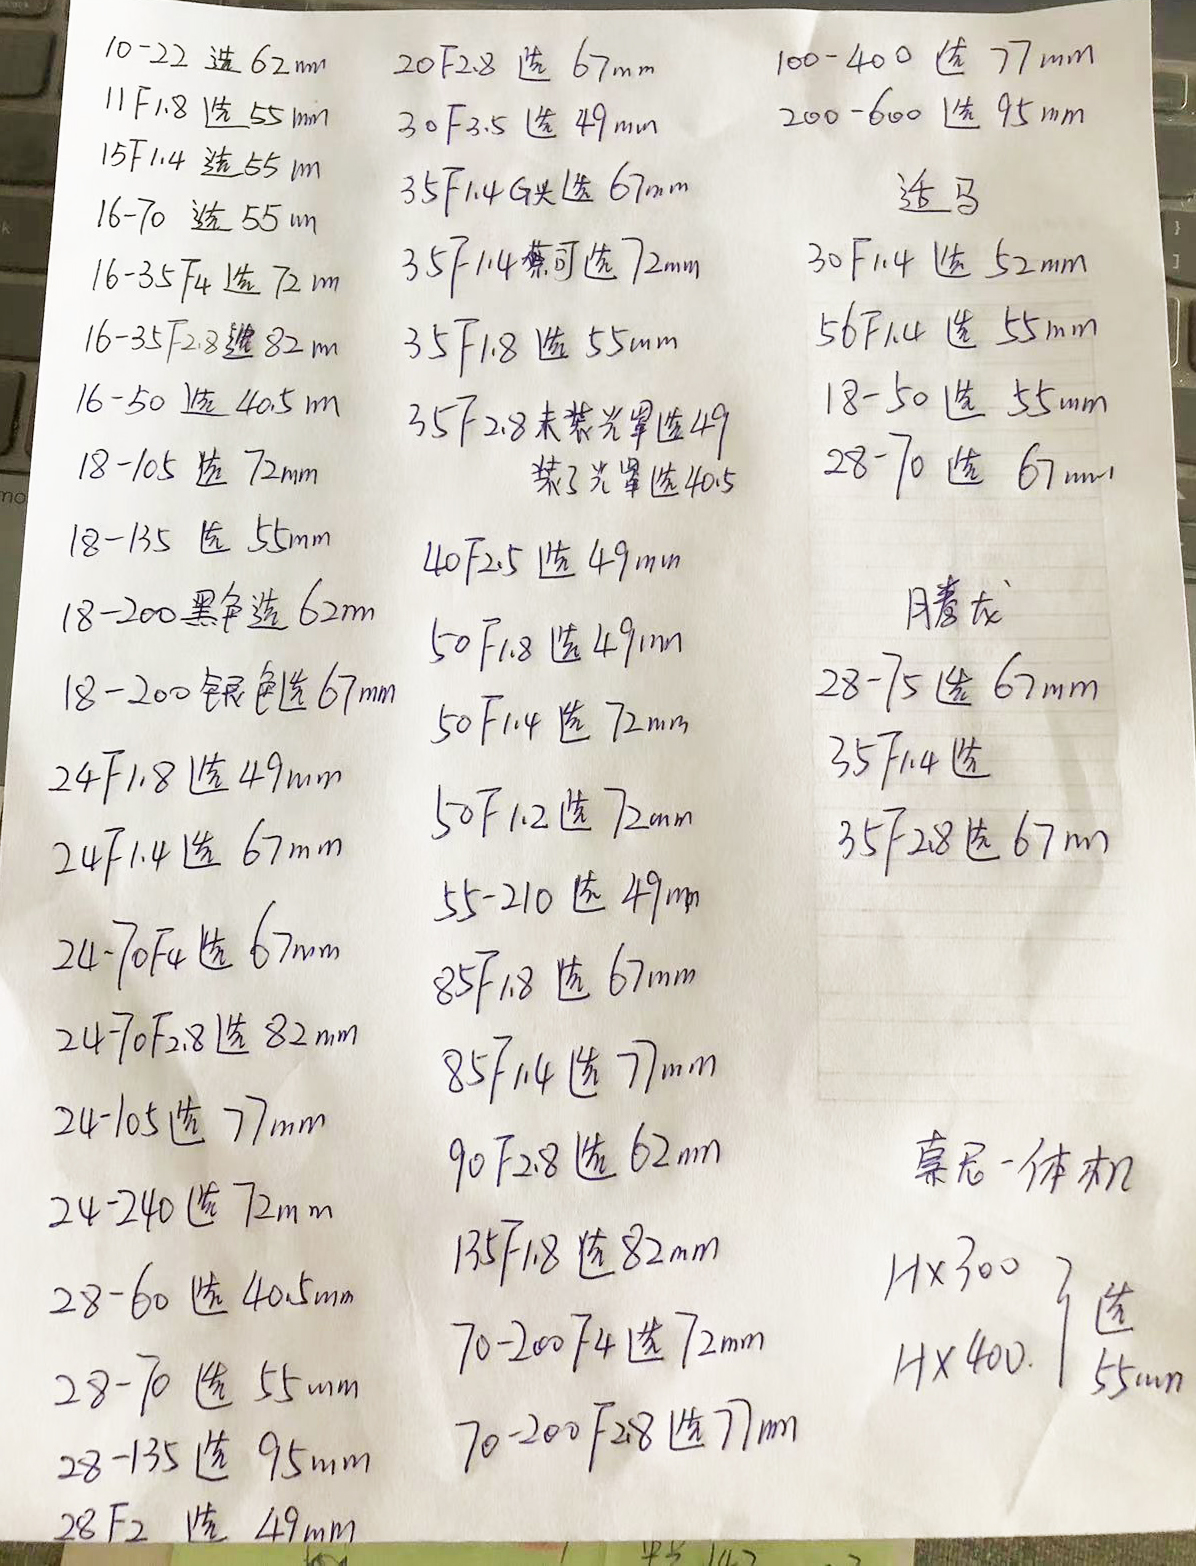 10-22 选 62mm
11F1.8 选 55mm
15F1.4 选 55m
16-70 选 55m
16-35F4 选 72m
16-35F2.8 选 82m
16-50 选 40.5m
18-105 选 72mm
18-135 选 55mm
18-200黑色选 62m
18-200银色选 67mm
24F1.8 选 49mm
24F1.4 选 67mm
24-70F4 选 67mm
24-70F2.8 选 82mm
24-105 选 77mm
24-240 选 72mm
28-60 选 40.5mm
28-70 选 55mm
28-135 选 95mm
28F2 选 49mm
20F2.8 选 67mm
30F3.5 选 49mm
35F1.4 G头选 67mm
35F1.4 蔡司选 72mm
35F1.8 选 55mm
35F2.8 未装光罩选49
装了光罩选40.5
40F2.5 选 49mm
50F1.8 选 49mm
50F1.4 选 72mm
50F1.2 选 72mm
55-210 选 49mm
85F1.8 选 67mm
85F1.4 选 77mm
90F2.8 选 62mm
135F1.8 选 82mm
70-200F4 选 72mm
70-200F2.8 选 77mm
100-400 选 77mm
200-600 选 95mm
适马
30F1.4 选 52mm
56F1.4 选 55mm
18-50 选 55mm
28-70 选 67mm
腾龙
28-75 选 67mm
35F1.4 选
35F2.8 选 67m
索尼一体机
HX300
HX400.
选
55mm